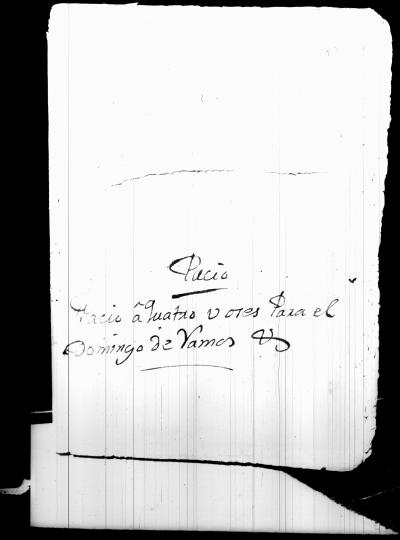 Pacio
Pacio â quatro voses Para el
Domingo de Ramos